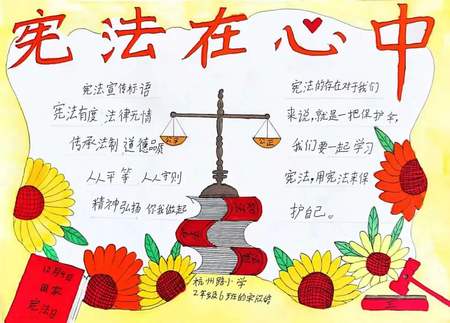 宪法在心中
宪法宣传标语
宪法有度 法律无情
传承法制 道德品质
人人平等 人人守则
精神弘扬 你我做起
宪法的存在对于我们
来说,就是一把保护伞,
我们要一起学习
宪法,用宪法来保
护自己。
公正
12月4日
国家
宪法日
杭州路小学
2年级6班的宋欣